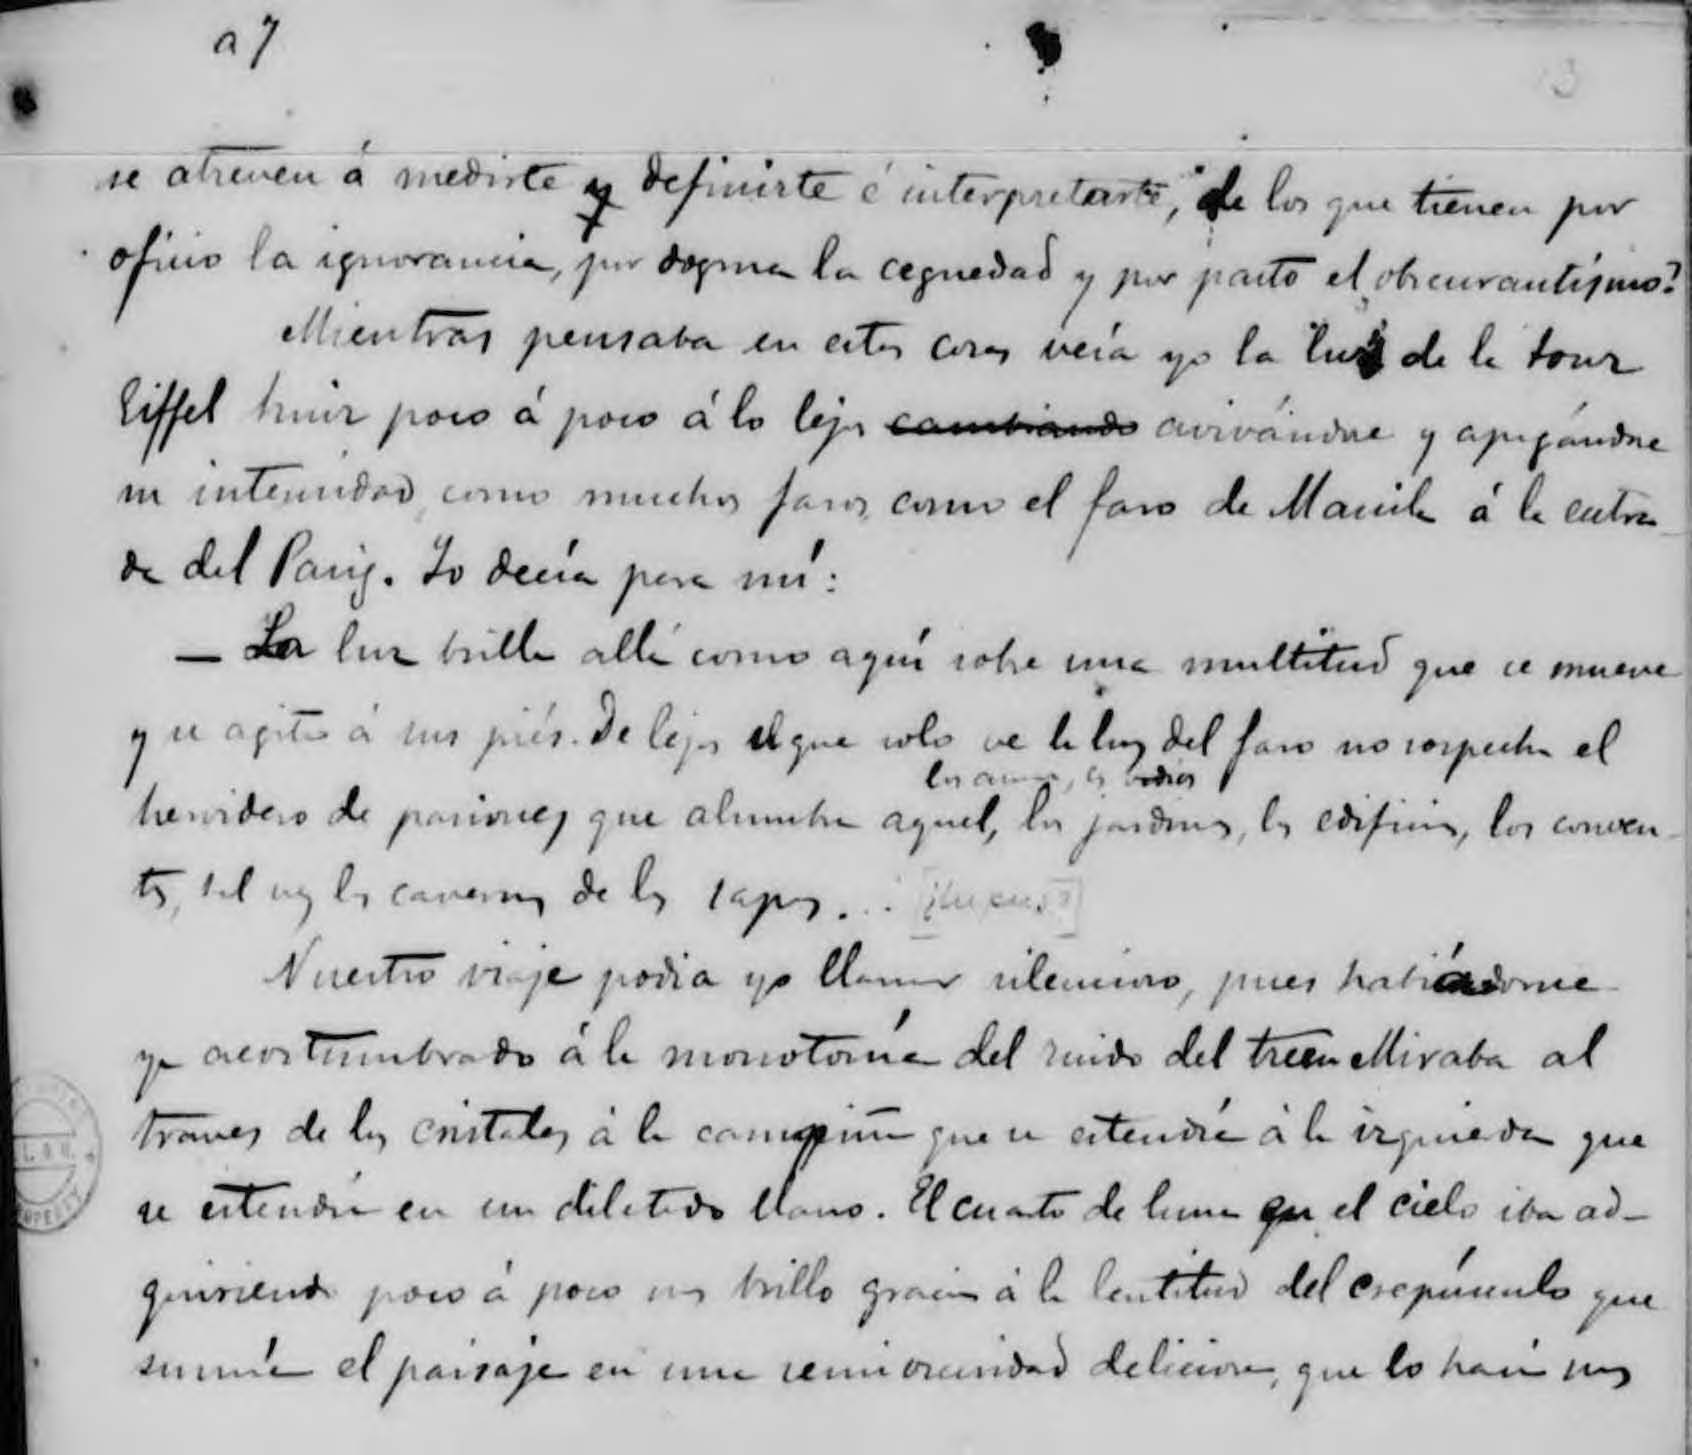 a 7
se atreven á medirte y definirte é interpretarte, de los que tienen por
oficio la ignorancia, por dogma la ceguedad y por pacto el obscurantismo?
Mientras pensaba en estas cosas veía yo la luz de la tour
Eiffel huir poco á poco á lo lejos cambiando avivándose y apagándose
su intensidad como muchos faros, como el faro de Manila á la entra
da del Pasig. Yo decía para mí:
— La luz brilla allí como aquí sobre una multitud que se mueve
y se agita á sus piés. De lejos el que solo ve la luz del faro no sospecha el
los amores, los odios
hervidero de pasiones que alumbra aquel, los jardines, los edificios, los conven-
tos, tal vez las cavernas de los
Nuestro viaje podia yo llamar silencioso, pues habiéndome
ya acostumbrado á la monotonía del ruido del tren Miraba al
traves de los cristales á la campiña que se estendía á la izquierda que
se estendía en un dilatado llano. El cuarto de luna en el cielo iba ad-
quiriendo poco á poco mas brillo gracias á la lentitud del crepúsculo que
sumía el paisaje en una semioscuridad deliciosa, que lo hacía mas